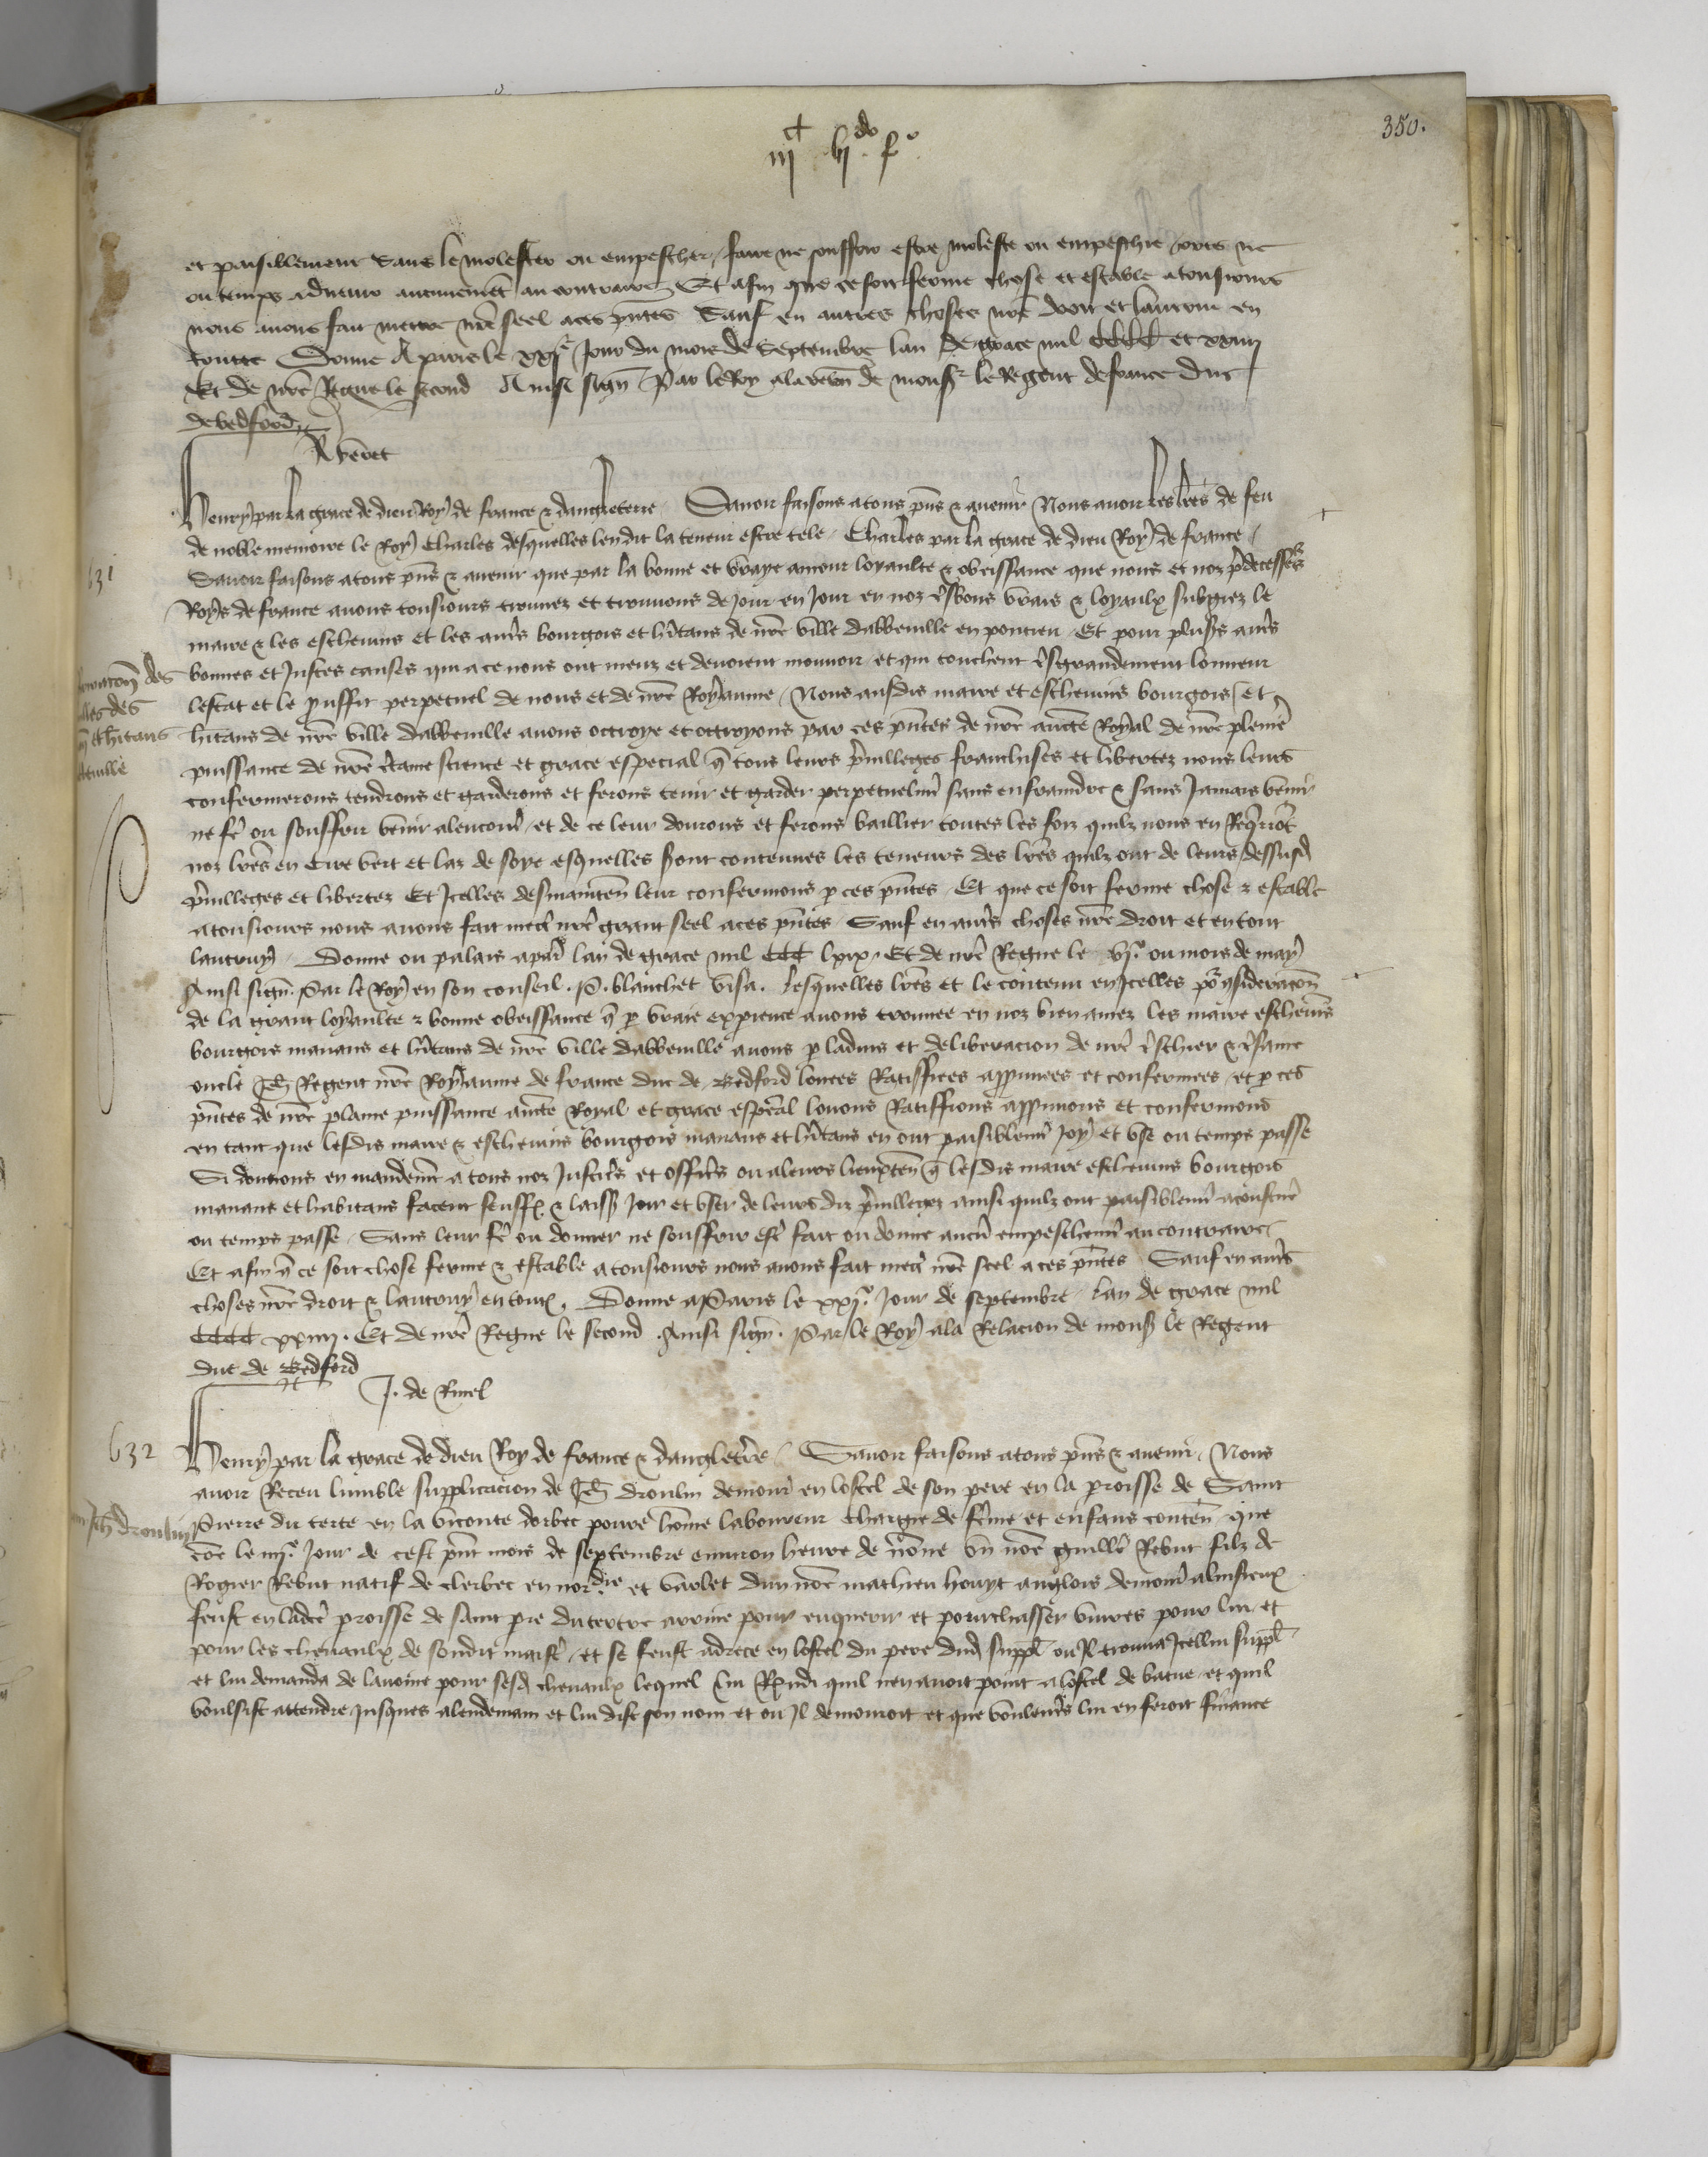 350.
iijct lj do. fo.
et paisiblement sans le molester ou empescher faire ne souffrir estre moleste ou empeschie ores ne
ou temps advenir aucunement au contraire Et afin que ce soit ferme chose et estable a tousiours
nous avons fait mettre nre seel a ces pntes Sauf en autres choses nre droit et lautrui en
toutes Donne A paris le xxije Jour du mois de Septembre lan de grace mil cccc et xxiiij
Et de nre Regne le second Ainsi sign Par le Roy a la relon de monsr le Regent de france duc
de bedford
Henry par la grace de dieu Roy de france & dangleterre Savoir faisons a tous pns & avenir Nous avoir les lres de feu
de noble memoire le Roy Charles desquelles len dit la teneur estre tele Charles par la grace de dieu Roy de france
631
Savoir faisons a tous pns & avenir que par la bonne et vraye amour loyaulte & obeissance que nous et noz predecessrs
Roys de france avons tousiours trouvez et trouvons de jour en jour en noz tsbons vrais & loyaulx subgiez le
maire & les eschevins et les aurs bourgois et hitans de nre ville dabbeville en pontieu Et pour plusrs aurs
bonnes et Justes causes qui a ce nous ont meuz et devoient mouvoir et qui touchent tsgrandement lonneur
lestat et le prouffit perpetuel de nous et de nre Royaume Nous ausdis maire et eschevins bourgois et
hitans de nre ville dabbeville avons octroye et octroyons par ces pntes de nre aucte Royal de nre pleniere
puissance de nre certaine science et grace especial q tous leurs privilleges franchises et libertez nous leurs
confermerons tendrons et garderons et ferons tenir et garder perpetuelmt sans enfraindre & sans Jamais venir
ne fe ou souffrir venir alencont et de ce leur donrons et ferons baillier toutes les foiz quilz nous en Requerrot
noz lres en Cire vert et laz de soye esquelles sont contenues les teneurs des lres quilz ont de leurs dessusd
privilleges et libertez Et Icelles desmainten leur confermons p ces pntes Et que ce soit ferme chose & estable
a tousiours nous avons fait mect nre grant seel a ces pntes Sauf en aurs choses nre droit et en tout
lautruy Donne ou palais a par lan de grace mil CCC lxix Et de nre Regne le vje ou mois de may
Ainsi sign. Par le Roy en son conseil. P. blanchet visa. Lesquelles lres et le contenu en Icelles por consideracon
de la grant loyaulte & bonne obeissance q p vraie expience avons trouvee en noz bien amez les maire eschevins
bourgois manans et hitans de nre ville dabbeville avons p ladvis et deliberacion de nre tschier & tsame
oncle Jeh Regent nre Royaume de france duc de Bedford louees Ratiffiees approuvees et confermees et p ces
pntes de nre plaine puissance aucte Royal et grace especal louons Ratiffions approuvons et confermons
en tant que lesdis maire & eschevins bourgois manans et hitans en ont paisiblemt Joy et use ou temps passe
Si donnons en mandemt a tous noz Justiciers et officrs ou a leurs lieuxten q lesdis maire eschevins bourgois
manans et habitans facent seuffr & laiss joir et user de leursdiz privilleges ainsi quilz ont paisiblemt acoustume
ou temps passe Sans leur fe ou donner ne souffrir est fait ou donne aucu empeschemt au contraire
Et afin q ce soit chose ferme & estable a tousiours nous avons fait mect nre seel a ces pntes Sauf en aurs
choses nre droit & lautruy en tout Donne a Paris le xxije Jour de septembre lan de grace mil
CCCC xxiiij. Et de nre Regne le second Ainsi sign. Par le Roy a la Relacion de monsr le Regent
duc de Bedford
J. de Rinel
632
Henry par la grace de dieu Roy de france & dangleterre Savoir faisons a tous pns & avenir Nous
avoir Receu lumble supplicacion de Jeh droulin demour en lostel de son pere en la proisse de Saint
Jeh droulin
Pierre du terte en la viconte dorbec povre home laboureur chargie de fme et enfans conten que
coe le iije Jour de cest pnt mois de septembre environ heure de none un nome guille Rebut filz de
Rogier Rebut natif de clerbec en nordie et varlet dun nome mathieu houyt anglois demour a lisieux
feust en ladce proisse de saint pre du tertre arrive pour enquerir et pourchasser vivres pour lui et
pour les chevaulx de sondit maist et se feust adrece en lostel du pere dud suppl ou Il trouva Icellui suppl
et lui demanda de lavoine pour sesd chevaulx lequel lui Rendi quil nen avoit point a lostel de batue et quil
voulsist attendre jusques a lendemain et lui dist son nom et ou Il demouroit et que voulentrs lui en feroit finance